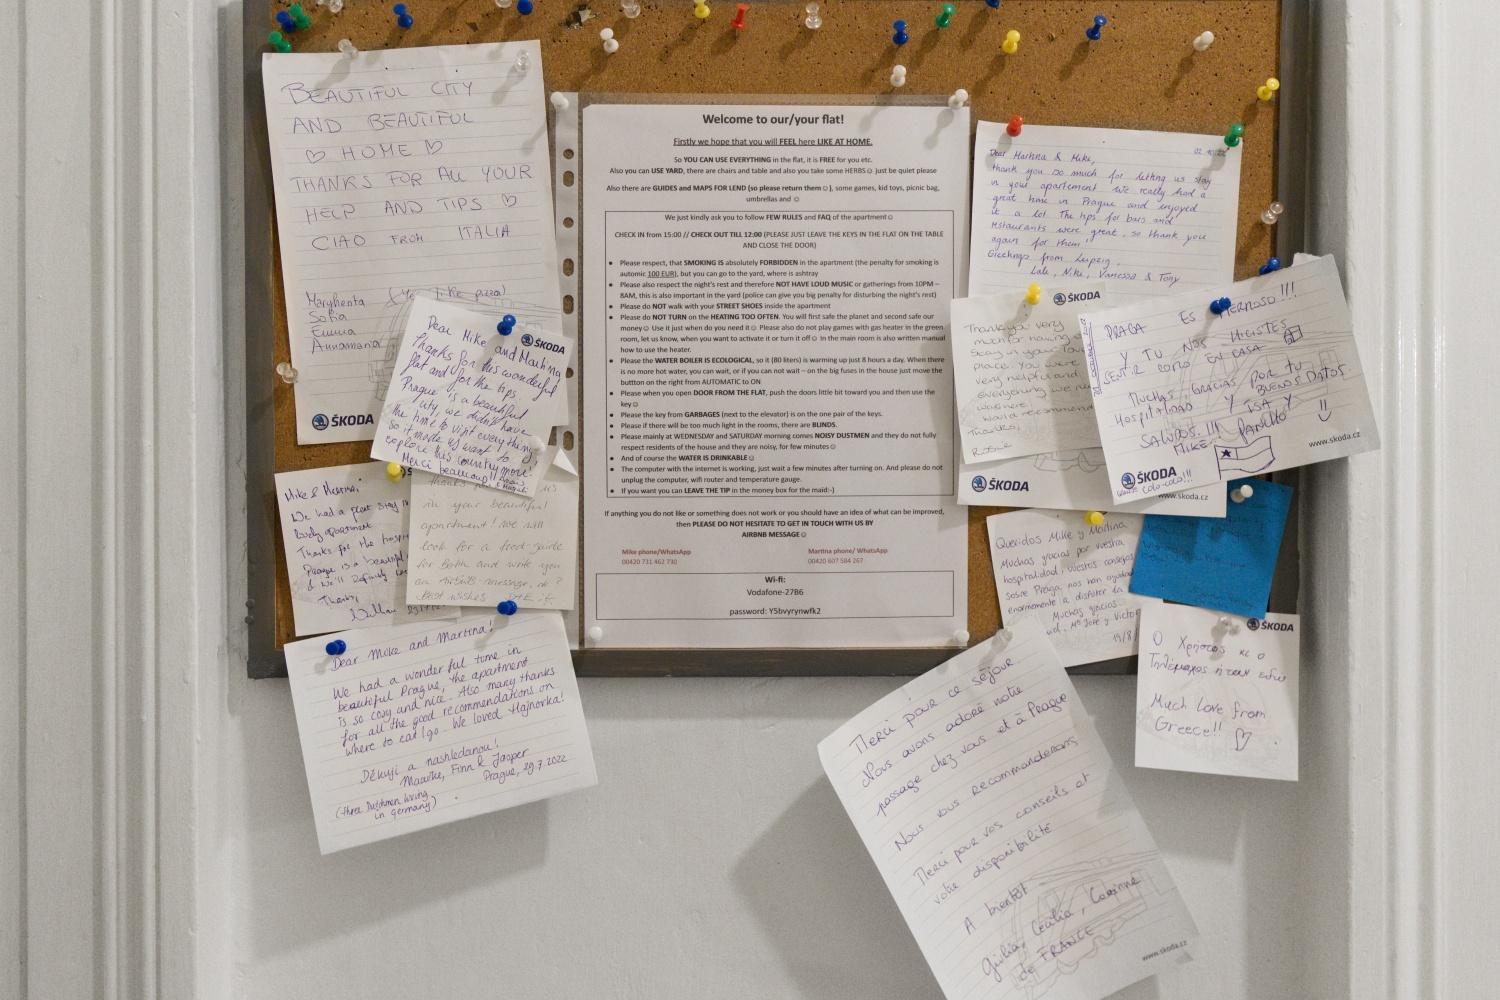 BEAUTIFUL CITY
AND BEAUTIFUL
♡ HOME ♡
THANKS FOR ALL YOUR
HELP AND TIPS ♡
CIAO FROM ITALIA
Margherita (Yes, like pizza)
Sofia
Emma
Annamaria
ŠKODA
Dear Mike and Martina
ŠKODA
thanks for this wonderful
flat and for the tips.
Prague is a beautiful
city, we didn't have
the time to visit everything,
so it made us want to
explore this country more!
Merci beaucoup!!
Mike & Martina,
We had a great stay in
lovely apartment
Thanks for the
Prague is a beautiful
& We'll definitely
Thanks,
in your beautiful
apartment! We will
look for a food-guide
for Both and write you
an AirBnB-message, ok?
Best wishes
Dear Mike and Martina!
We had a wonderful time in
beautiful Prague, the apartment
is so cosy and nice. Also many thanks
for all the good recommendations on
where to eat/go. We loved Hajnovka!
Děkuji a nashledanou!
Maaike, Finn & Jasper
Prague, 29.7.2022
(three Dutchmen living
in Germany)
Welcome to our/your flat!
Firstly we hope that you will FEEL here LIKE AT HOME.
So YOU CAN USE EVERYTHING in the flat, it is FREE for you etc.
Also you can USE YARD, there are chairs and table and also you take some HERBS☺ just be quiet please
Also there are GUIDES and MAPS FOR LEND (so please return them☺), some games, kid toys, picnic bag,
umbrellas and ☺
We just kindly ask you to follow FEW RULES and FAQ of the apartment☺
CHECK IN from 15:00 // CHECK OUT TILL 12:00 (PLEASE JUST LEAVE THE KEYS IN THE FLAT ON THE TABLE
AND CLOSE THE DOOR)
• Please respect, that SMOKING IS absolutely FORBIDDEN in the apartment (the penalty for smoking is
automic 100 EUR), but you can go to the yard, where is ashtray
• Please also respect the night's rest and therefore NOT HAVE LOUD MUSIC or gatherings from 10PM –
8AM, this is also important in the yard (police can give you big penalty for disturbing the night's rest)
• Please do NOT walk with your STREET SHOES inside the apartment
• Please do NOT TURN on the HEATING TOO OFTEN. You will first safe the planet and second safe our
money☺ Use it just when do you need it☺ Please also do not play games with gas heater in the green
room, let us know, when you want to activate it or turn it off☺ In the main room is also written manual
how to use the heater.
• Please the WATER BOILER IS ECOLOGICAL, so it (80 liters) is warming up just 8 hours a day. When there
is no more hot water, you can wait, or if you can not wait – on the big fuses in the house just move the
buttton on the right from AUTOMATIC to ON
• Please when you open DOOR FROM THE FLAT, push the doors little bit toward you and then use the
key☺
• Please the key from GARBAGES (next to the elevator) is on the one pair of the keys.
• Please if there will be too much light in the rooms, there are BLINDS.
• Please mainly at WEDNESDAY and SATURDAY morning comes NOISY DUSTMEN and they do not fully
respect residents of the house and they are noisy, for few minutes☺
• And of course the WATER IS DRINKABLE☺
• The computer with the internet is working, just wait a few minutes after turning on. And please do not
unplug the computer, wifi router and temperature gauge.
• If you want you can LEAVE THE TIP in the money box for the maid:-)
If anything you do not like or something does not work or you should have an idea of what can be improved,
then PLEASE DO NOT HESITATE TO GET IN TOUCH WITH US BY
AIRBNB MESSAGE☺
Mike phone/WhatsApp
00420 731 462 730
Martina phone/ WhatsApp
00420 607 584 267
Wi-fi:
Vodafone-27B6
password: Y5bvyrynwfk2
Dear Martina & Mike,
thank you so much for letting us stay
in your apartement. We really had a
great time in Prague and enjoyed
it a lot. The tips for bars and
restaurants were great, so thank you
again for them!
Greetings from Leipzig,
Lale, Nike, Vanessa & Tony
ŠKODA
Thank you very
much for having
Stay in your
place. You were
very helpful and
everything we
was here!
would recommend
Thanks,
ŠKODA
www.skoda.cz
PRAGA ES HERMOSO!!!
Y TU NOS HICISTES
SENTIR COMO EN CASA
MUCHAS GRACIAS POR TU
HOSPITALIDAD Y BUENOS DATOS.
SALUDOS!!! ISA Y
MIKE PANCHO
www.skoda.cz
ŠKODA
Queridos Mike y Martina
Muchas gracias por vuestra
hospitalidad, vuestros consejos
sobre Praga nos han ayudado
enormemente a disfrutar la
Muchas gracias
Mª José y Victor
19/8/
ŠKODA
Ο Χρήστος κι ο
Τηλέμαχος ήταν εδώ
Much Love from
Greece!! ♡
Merci pour ce séjour
Nous avons adoré notre
passage chez vous et à Prague
Nous vous recommanderons
Merci pour vos conseils et
votre disponibilité
A bientôt
Giulia, Cécilia, Corinne
de FRANCE
www.skoda.cz